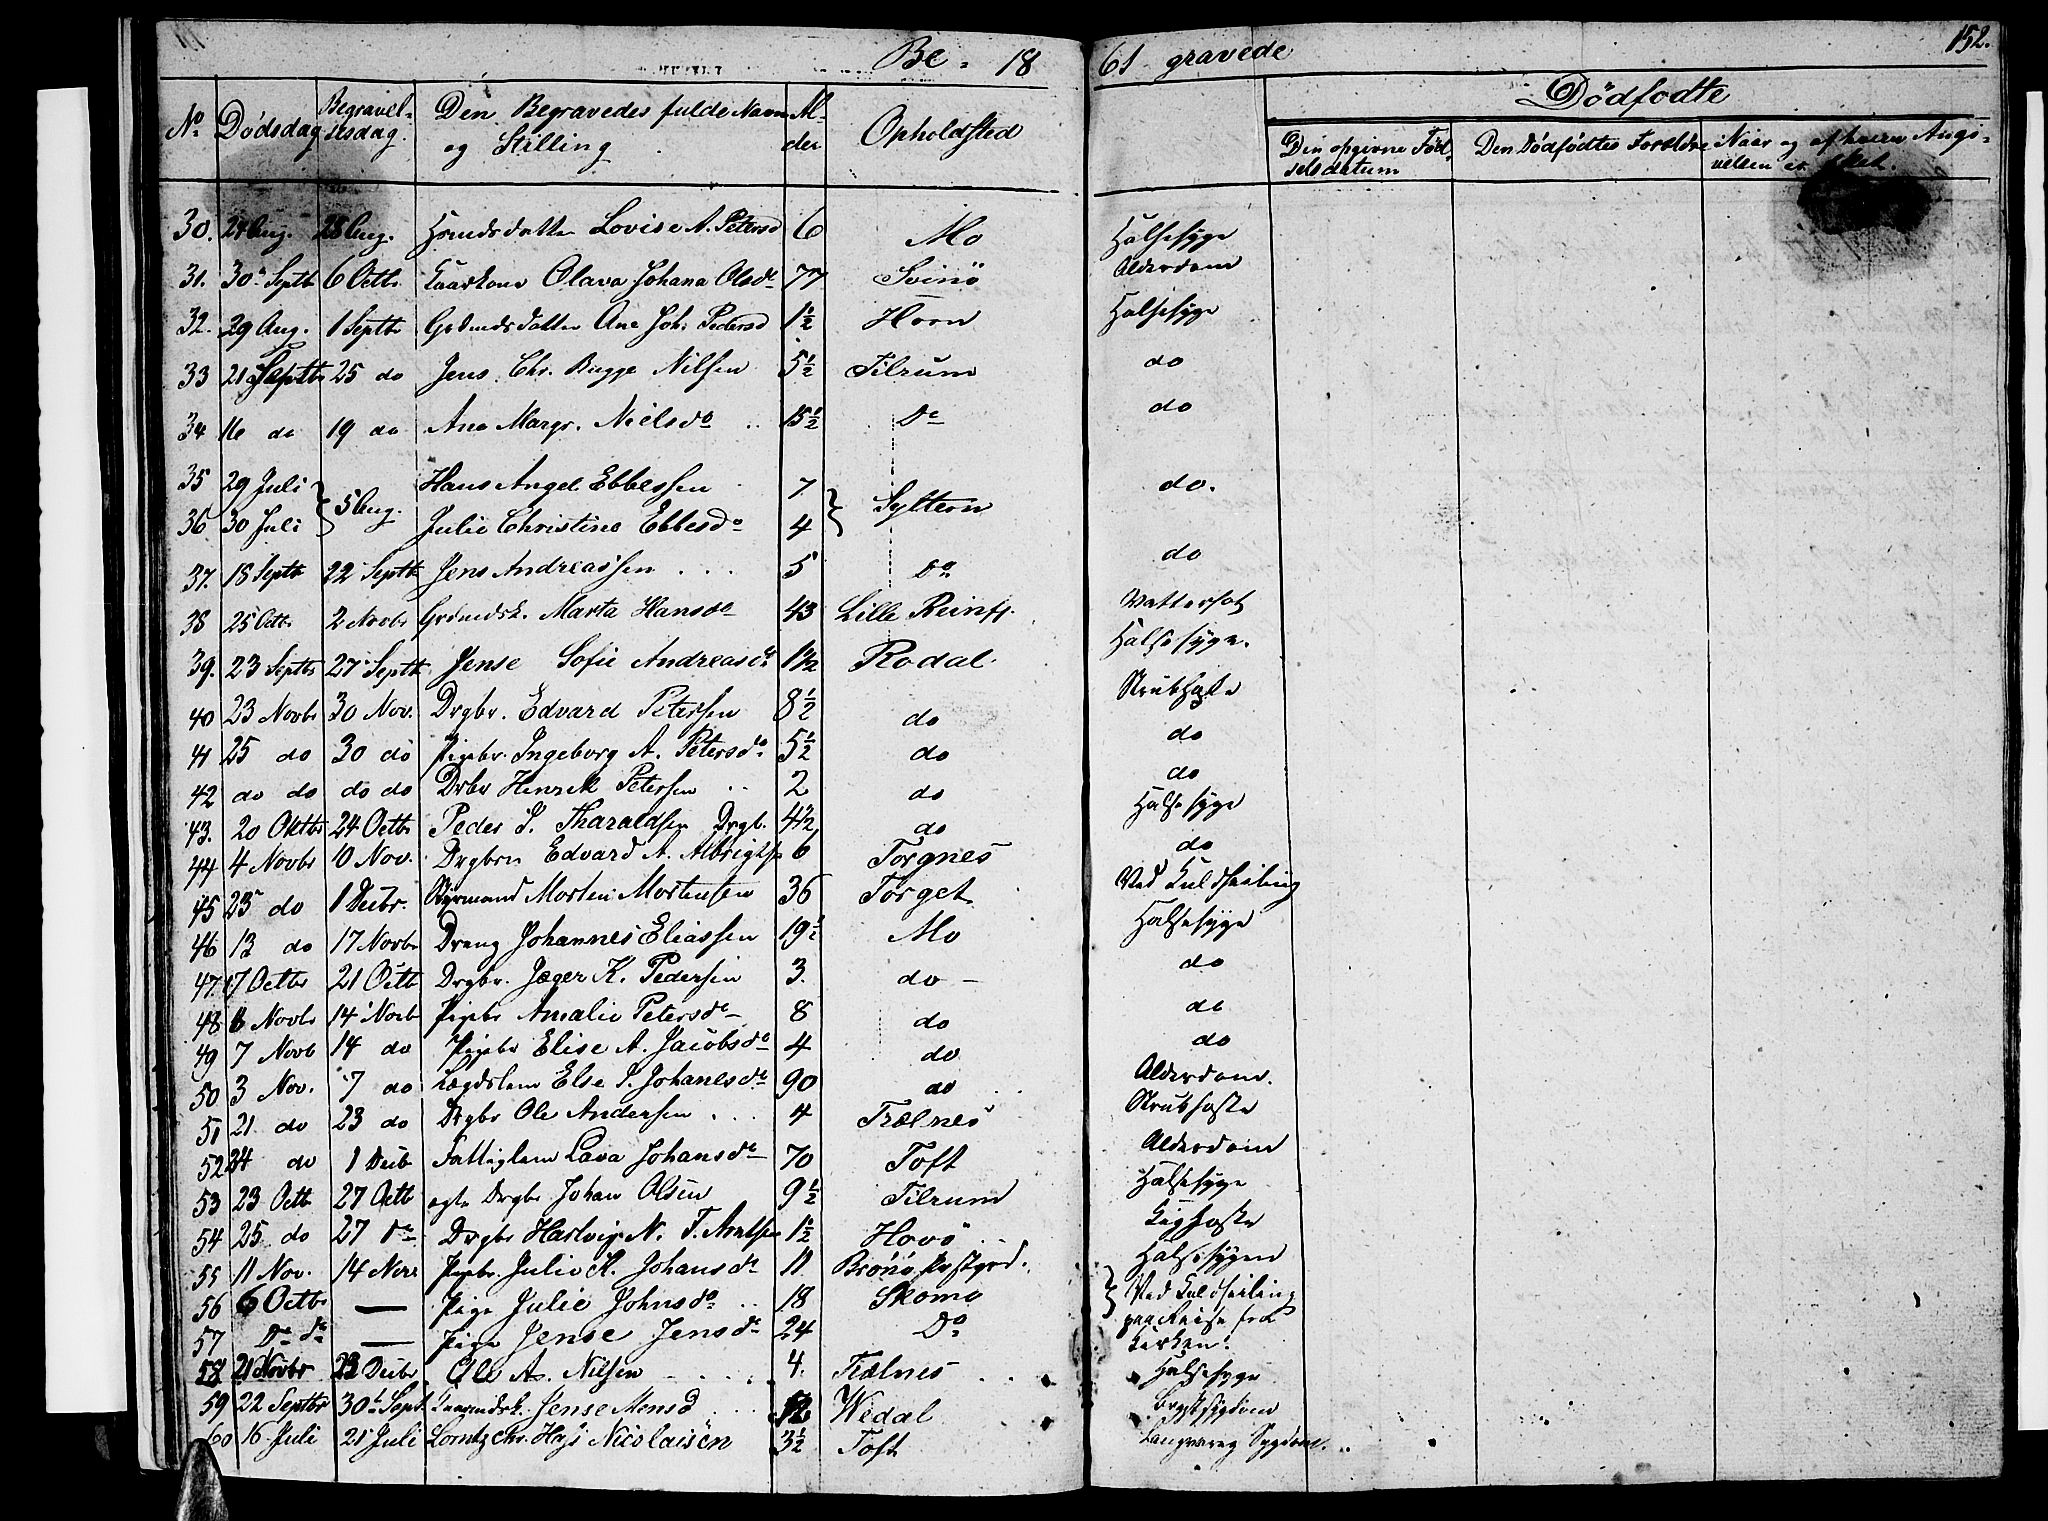 Be- 18 61 gravede 152.
Dødfødte
No Dødsdag Begravelsesdag. Den Begravedes fulde Navn og Stilling Alder Opholdsted Den opgivne Fødselsdatum Den Dødfødtes Forældre Naar og af hvem Angivelsen er skeet.
30. 24 Aug. 28 Aug. Lovise A. Petersd 6 Mo Halsesyge
31. 30 Septb 6 Octb Kaarkone Olava Johana Olsdr 77 Svinö Alderdom
32. 29 Aug. 1 Septb Grdmdsdatter Ane Joh: Pedersd 1½ Horn Halsesyge
33 21 Septb 25 do Jens Chr. Bugge Nilsen 5½ Tilrum do
34 16 do 19 do Ane Margr. Nielsdr 15½ Do do
35 29 Juli } 5 Aug. Hans Angel Ebbessen 7 } Syltern do.
36 30 Juli Julie Christine Ebbesdr 4
37. 18 Septb 22 Septb Jens Andreassen 5 Do do
38 25 Octb 2 Novbr Grdmdsk. Marta Hansdr 43 Lille Vattersot
39. 23 Septbr 27 Septb Jense Sofie Andreasdr Rodal. Halsesyge.
40 23 Novbr 30 Nov. Drgbr. Edvard Petersen 8½ do Strubhoste
41 25 do 30 do Pigebr. Ingeborg A. Petersdr 5½ do do
42 do do do do Drbr Henrik Petersen 2 do do
43. 20 Oktbr 24 Octbr Peder S. Tharaldsen Drgb. 4½ do Halsesyge
44 4 Novbr 10 Nov. Drgbrn Edvard A. Albrigts 6 Torgnes do
45 23 do 1 Decbr. Styrmand Morten Mortensen 36 Torget Ved Kuldseiling
46 13 do 17 Novbr Dreng Johannes Eliassen 19½ Mo Halsesyge
47. 17 Octbr 21 Octb Drgbr. Jæger K. Pedersen 3. do - do
48 8 Novbr 14 Novb Pigebr Amalie Petersdr 8 do do
49 7 Novb 14 do Pigebr Elise A. Jacobsdr 4 do do
50 3 Nov. 7 do Lægdslem Else J. Johanesdr 90 do Alderdom.
51 21 do 23 do Drgbr Ole Andersen 4 Trælnes Strubhoste
52 24 do 1 Decb Fattiglem Lava Johansdr 70 Toft Alderdom
53 23 Octb 27 Octb egte Drgbr Johan Olsen 9½ Tilrum Halsesyge
54 25 do 27 do Drgbr Hartvig N. T. Arntsen 1½ Havö Kighoste
55 11 Nov. 14 Nov Pigebr. Julie K. Johansdr 11 Brönö Præstgrd. Halsesygen
56 6 Octbr — Pige Julie Johnsdr 18 Skomo } Ved Kuldseiling
57 Do do — Pige Jense Jensdr 24 Do paa Reise fra Kirken.
58 21 Novbr 23 Decbr Ole A. Nilsen 4. Trælnes Halsesyge
59 22 Septbr 30 Sept. Jense Monsd Wedal Brystsygdom
60 16 Juli 21 Juli Lorntz Chr. Nicolaisen 3½ Toft Langvarig Sygdom.